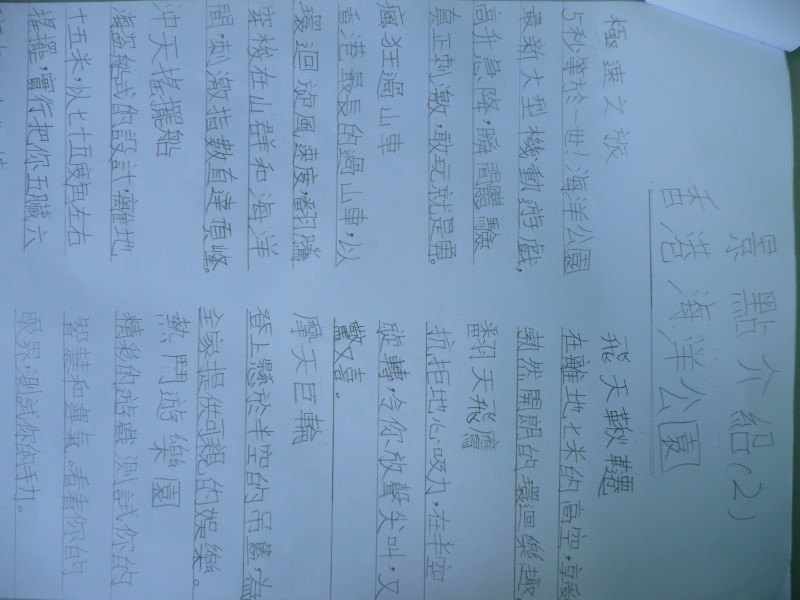 景點介紹(2)
香港海洋公園
極速之旅
5秒等於一世!海洋公園
最新大型機動遊戲,
高升急降,瞬間體驗
真正刺激,敢玩就是勇。
瘋狂過山車
香港最長的過山車,以
環迴旋風速度,翻騰
穿梭在山群和海洋
間,刺激指數直達頂峰。
沖天搖擺船
海盜船式的設計,離地
十五米,以七十五度角左右
搖擺,實行把你五臟六
飛天鞦韆
在離地七米的高空,享受
豁然開朗的環迴樂趣
翻天飛鷹
抗拒地心吸力,在半空
旋轉,令你放聲尖叫,又
驚又喜。
摩天巨輪
登上懸於半空的吊籃,為
全家提供可觀的娛樂。
熱鬥遊樂園
精彩的遊戲測試你的
智慧和運氣。看看你的
眼界,測試你的手力。